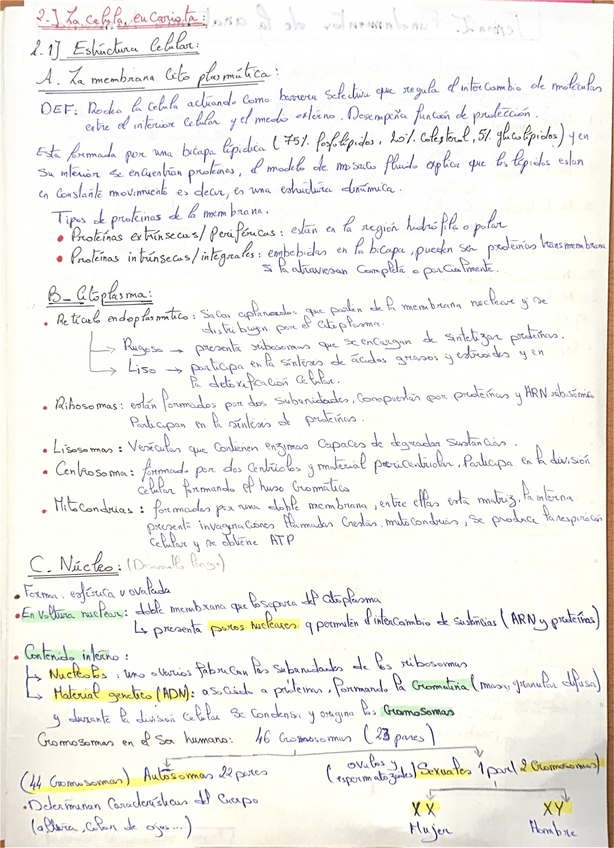 2-] La celula, eucariota:
2.1] Estructura Celular:
A. La membrana Cito plasmática:
DEF: Rodea la celula actuando como barrera selectiva que regula el intercambio de moléculas
entre el interior celular y el medio externo. Desempeña función de protección.
Esta formada por una bicapa lipidica (75% fosfolípidos, 20% colesterol, 5% glucolípidos) y en
su interior se encuentran proteínas, el modelo de mosaico fluido explica que los lípidos estan
en constante movimiento es decir, es una estructura dinámica.
Tipos de proteinas de la membrana.
• Proteínas extrínsecas/Periféricas: están en la región hidrófila o polar
• Proteínas intrínsecas/integrales: embebidas en la bicapa, pueden ser proteínas transmembrana
si la atraviesan completa o parcialmente.
B- Citoplasma:
• Retículo endoplasmático: Sacos aplanados que parten de la membrana nuclear y se
distribuyen por el citoplasma.
→ Rugoso → presenta ribosomas que se encargan de sintetizar proteínas.
→ Liso → participa en la síntesis de ácidos grasos y estroides y en
la detoxificación celular.
• Ribosomas: están formados por dos subunidades, compuestas por proteínas y ARN ribosómico
Participan en la síntesis de proteínas.
• Lisosomas: Vesículas que contienen enzimas capaces de degradar sustancias.
• Centrosoma: formado por dos centriolos y material pericentriolar, Participa en la división
celular formando el huso cromático
• Mitocondrias: formadas por una doble membrana, entre ellas esta matriz, la interna
presenta invaginaciones llamadas crestas mitocondrias, se produce la respiración
celular y se obtiene ATP
C. Núcleo: (Desarrollo largo)
• Forma: esférica u ovalada
• Envoltura nuclear: doble membrana que lo separa del citoplasma
↳ presenta poros nucleares q permiten el intercambio de sustancias (ARN y proteínas)
• Contenido interno:
↳ Nucleolos, uno o varios fabrican las subunidades de los ribosomas
↳ Material genetico (ADN): asociado a proteínas, formando la Cromatina (masa granular difusa)
y durante la división celular se condensa y origina los Cromosomas
Cromosomas en el ser humano: 46 Cromosomas (23 pares)
(44 Cromosomas) Autosomas 22 pares (ovulos y espermatozoides) Sexuales 1 par (2 Cromosomas)
• Determinan características del cuerpo
(altura, color de ojos...)
XX XY
Mujer Hombre